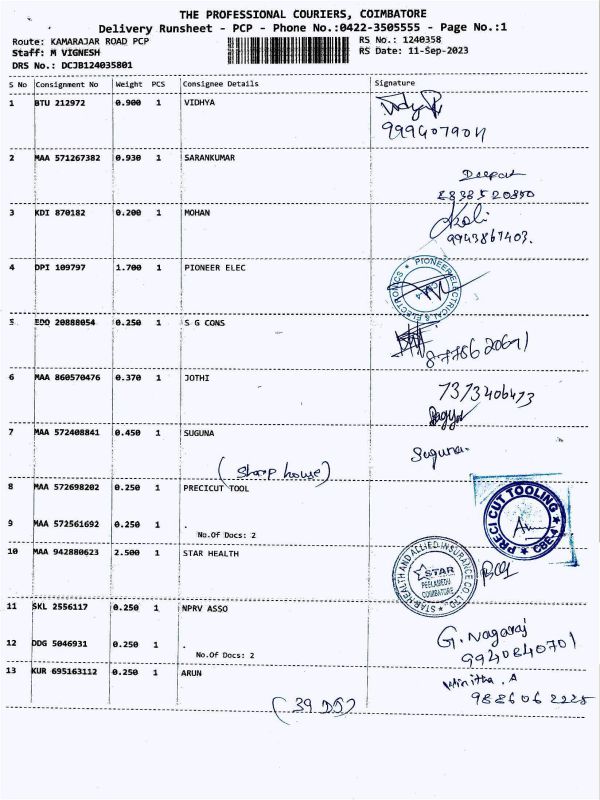 THE PROFESSIONAL COURIERS, COIMBATORE
Delivery Runsheet - PCP - Phone No.:0422-3505555 - Page No.:1
Route: KAMARAJAR ROAD PCP
Staff: M VIGNESH
DRS No.: DCJB124035801
RS No.: 1240358
RS Date: 11-Sep-2023
S No Consignment No Weight PCS Consignee Details Signature
1 BTU 212972 0.900 1 VIDHYA
9994079011
2 MAA 571267382 0.930 1 SARANKUMAR
Deepak
8838520850
3 KDI 870182 0.200 1 MOHAN
Kali
9943867403.
4 DPI 109797 1.700 1 PIONEER ELEC
PIONEER ELECTRICAL & ELECTRONICS
5 EDO 20888054 0.250 1 S G CONS
8778620691
6 MAA 860570476 0.370 1 JOTHI
7373406473
7 MAA 572408841 0.450 1 SUGUNA
Suguna.
(Sharp house)
8 MAA 572698202 0.250 1 PRECICUT TOOL
PRECI CUT TOOLING CBE-4
9 MAA 572561692 0.250 1 .
No.Of Docs: 2
10 MAA 942880623 2.500 1 STAR HEALTH
STAR HEALTH AND ALLIED INSURANCE CO. LTD.
STAR
PEELAMEDU
COIMBATORE
11 SKL 2556117 0.250 1 NPRV ASSO
G. Nagaraj
9940840701
12 DDG 5046931 0.250 1 .
No.Of Docs: 2
13 KUR 695163112 0.250 1 ARUN
Minitha. A
9886062225
(39 DS)